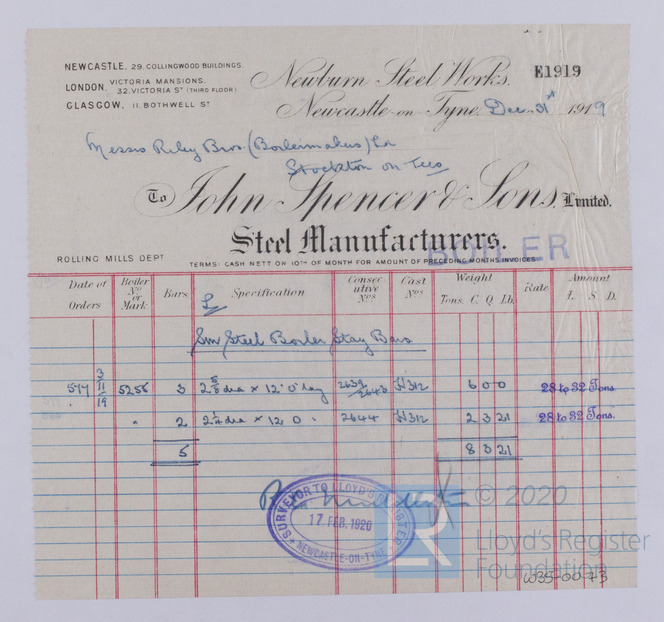 NEWCASTLE, 29. COLLINGWOOD BUILDINGS.
LONDON, VICTORIA MANSIONS. 32, VICTORIA ST (THIRD FLOOR)
GLASGOW, 11. BOTHWELL ST
Newburn Steel Works. E1919
Newcastle-on-Tyne, Dec. 31st 1919
Messrs Riley Bros. (Boilermakers) Ld
Stockton on Tees
To John Spencer & Sons. Limited.
Steel Manufacturers.
BOILER
ROLLING MILLS DEPT
TERMS: CASH NETT ON 10TH OF MONTH FOR AMOUNT OF PRECEDING MONTHS INVOICES
Date of Orders Boiler No or Mark Bars Specification Consecutive Nos Cast Nos Weight Tons. C. Q. Lb. Rate Amount £. S. D.
Sm Steel Boiler Stay Bars
577 3/11/19 5256 3 2 5/8 dia x 12' 0" long 2639/2643 H312 6 0 0 28 to 32 Tons.
" " 2 2 1/4 dia x 12 0 " 2644 H312 2 3 21 28 to 32 Tons.
5 8 3 21
SURVEYOR TO LLOYD'S REGISTER
17 FEB. 1920
NEWCASTLE-ON-TYNE
LR
© 2020
Lloyd's Register
Foundation
W35-0073